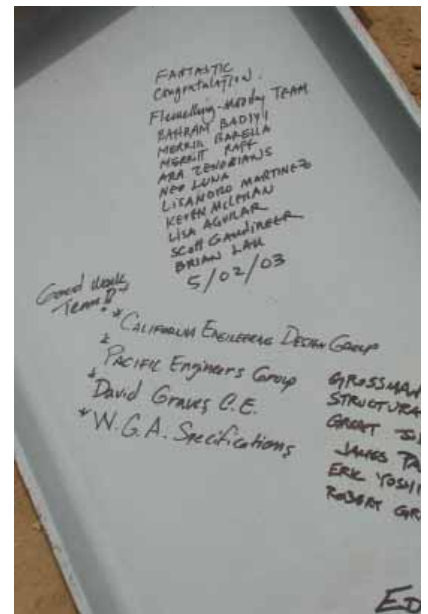 FANTASTIC
Congratulation.
Flewelling-Moody TEAM
BAHRAM BADIYI
MERRIL BARELLA
MERRIT RAFF
ARA ZENOBIANS
NEO LUNA
LISANDRO MARTINEZ
KEVEN MCLEHAN
LISA AGUILAR
SCOTT GAUDINEER
BRIAN LAU
5/02/03
Good Work
Team!!
* CALIFORNIA ENGINEERING DESIGN GROUP
* PACIFIC Engineers Group
* David Graves C.E.
* W.G.A. Specifications
GROSSMAN
STRUCTURA
GREAT
JAMES
ERIC YOSHI
ROBERT GR
ED